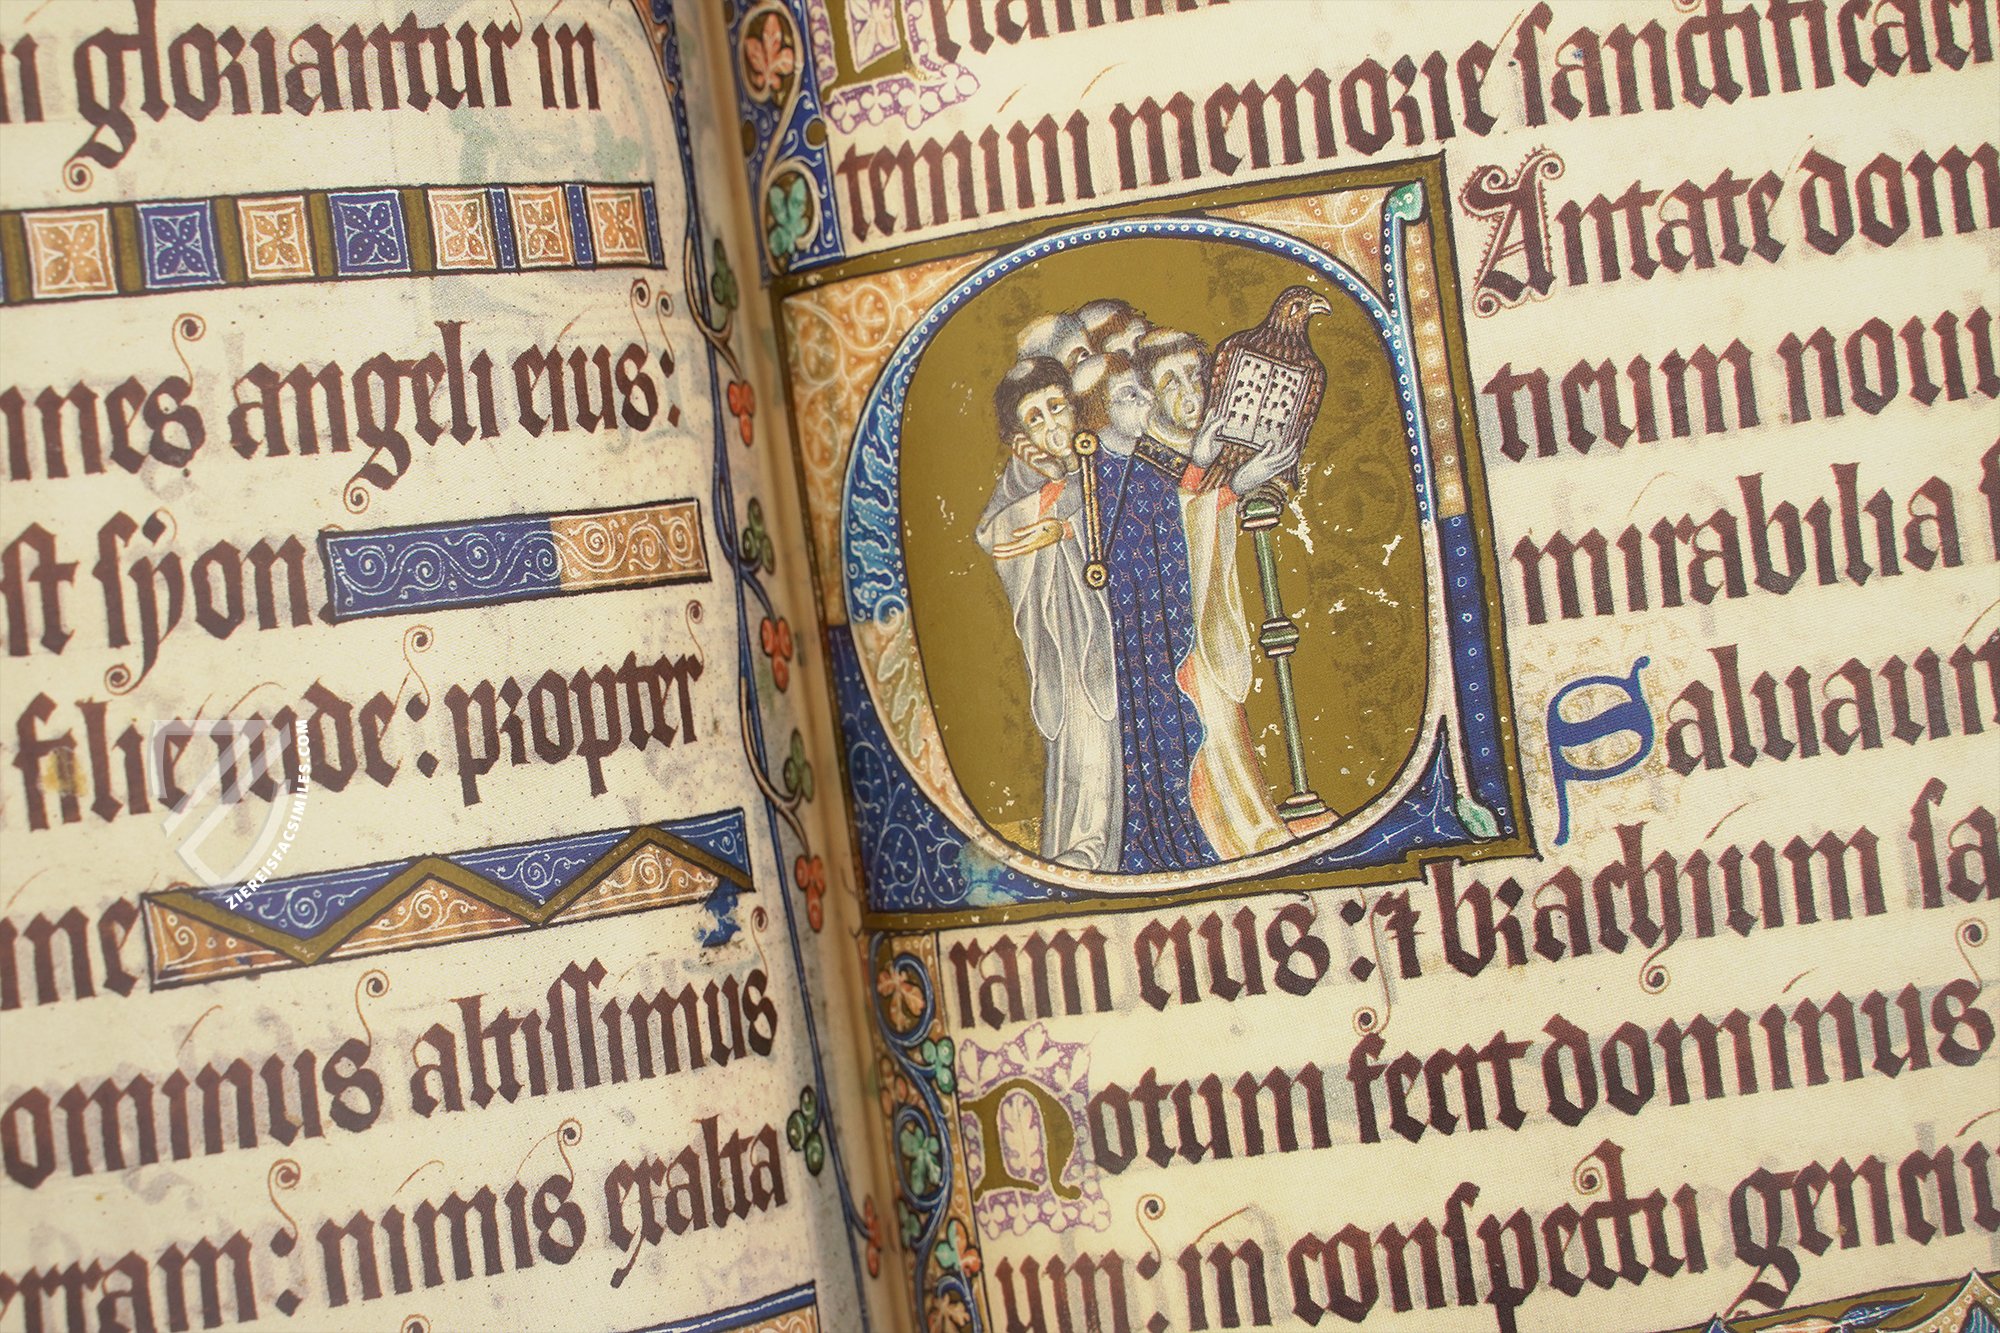 gloriantur in
angeli eius:
syon.
filie iude: propter
ominus altissimus
rram: nimis exalta
temini memorie sanctificaci
Cantate dom
ticum nouu
mirabilia
Saluauit
ram eius: ⁊ brachium sa
Notum fecit dominus
um: in conspectu genciu
ZIEREISFACSIMILES.COM